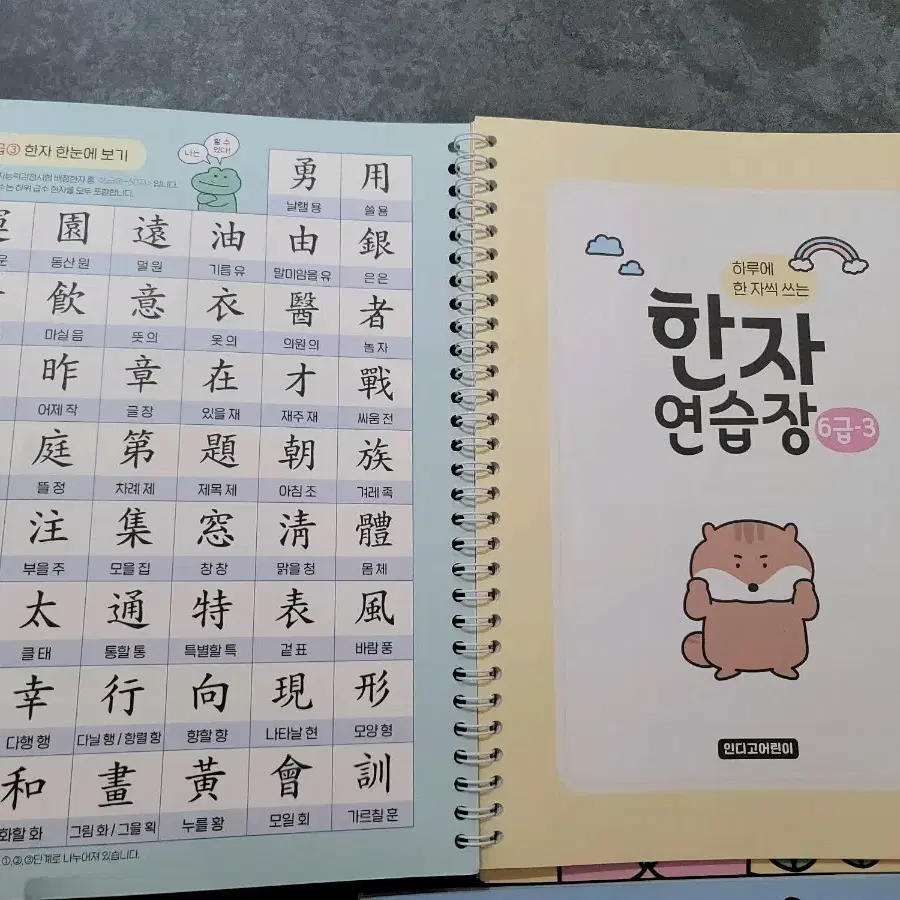 급③ 한자 한눈에 보기
나는
할 수
있다!
자능력검정시험 배정한자 중,
입니다.
수는 하위 급수 한자를 모두 포함합니다.
勇 用
날랠 용 쓸 용
園 遠 油 由 銀
운 동산 원 멀 원 기름 유 말미암을 유 은 은
飮 意 衣 醫 者
마실 음 뜻 의 옷 의 의원 의 놈 자
昨 章 在 才 戰
어제 작 글 장 있을 재 재주 재 싸움 전
庭 第 題 朝 族
뜰 정 차례 제 제목 제 아침 조 겨레 족
注 集 窓 淸 體
부을 주 모을 집 창 창 맑을 청 몸 체
太 通 特 表 風
클 태 통할 통 특별할 특 겉 표 바람 풍
幸 行 向 現 形
다행 행 다닐 행 / 항렬 항 향할 향 나타날 현 모양 형
和 畫 黃 會 訓
화할 화 그림 화 / 그을 획 누를 황 모일 회 가르칠 훈
①,②,③단계로 나누어져 있습니다.
하루에
한 자씩 쓰는
한자
연습장
6급-3
인디고어린이